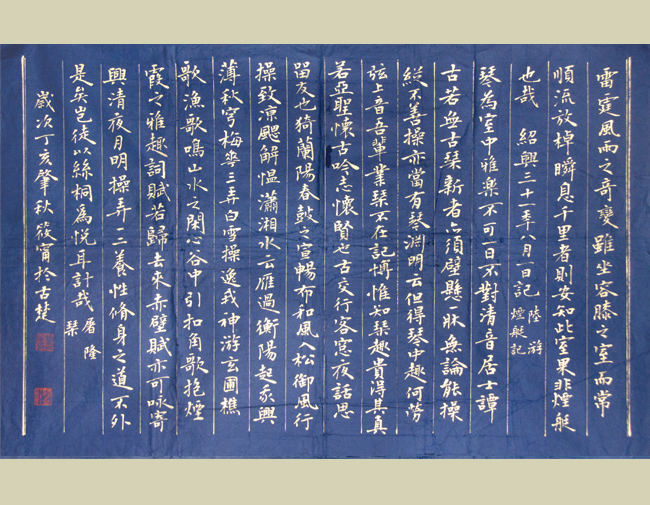 雷霆風雨之奇變雖坐容膝之室而常
順流放棹瞬息千里者則安知此室果非煙艇
也哉 紹興三十一年八月一日記 陸游 煙艇記
琴為室中雅樂不可一日不對清音居士譚
古若無古琴新者亦須壁懸一牀無論能操
縱不善操亦當有琴淵明云但得琴中趣何勞
弦上音吾輩業琴不在記博惟知琴趣貴得其真
若亞聖懷古吟志懷賢也古交行客窓夜話思
留友也猗蘭陽春鼓之宣暢布和風入松御風行
操致涼颸解慍瀟湘水云雁過衡陽起家興
薄秋穹梅花三弄白雪操逸我神游玄圃樵
歌漁歌鳴山水之閑心谷中引扣角歌抱煙
霞之雅趣詞賦若歸去來赤壁賦亦可咏寄
興清夜月明操弄一二養性脩身之道不外
是矣豈徒以絲桐為悅耳計哉 屠隆 琴
歲次丁亥肇秋筱甯於古楚